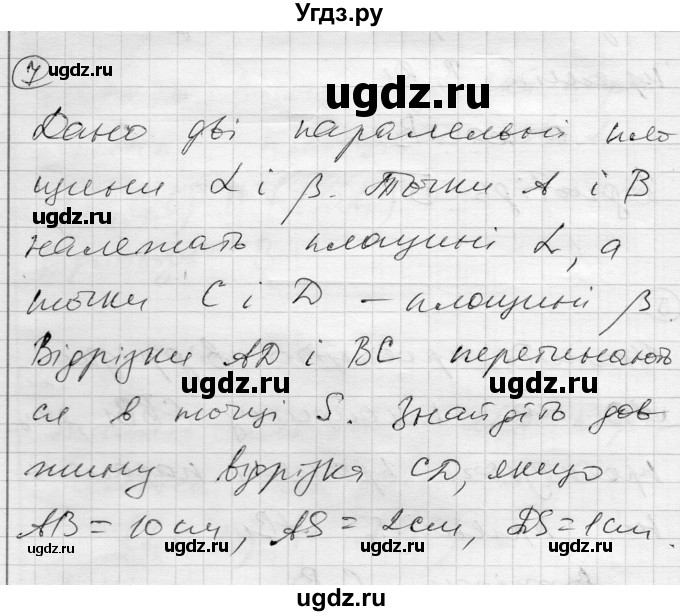 Угдз.ру
7 ugdz.ru
ugdz.ru
Дано дві паралельні пло
ugdz.ru
щини α і β. Точки А і В
ugdz.ru
належать площині α, а
точки С і D – площині β.
Відрізки AD і BC перетинають
ugdz.ru ugdz.ru
ся в точці S. Знайдіть дов
жину відрізка CD, якщо
AB = 10 см, AS = 2 см, DS = 1 см.
ugdz.ru ugdz.ru ugdz.ru
ugdz.ru